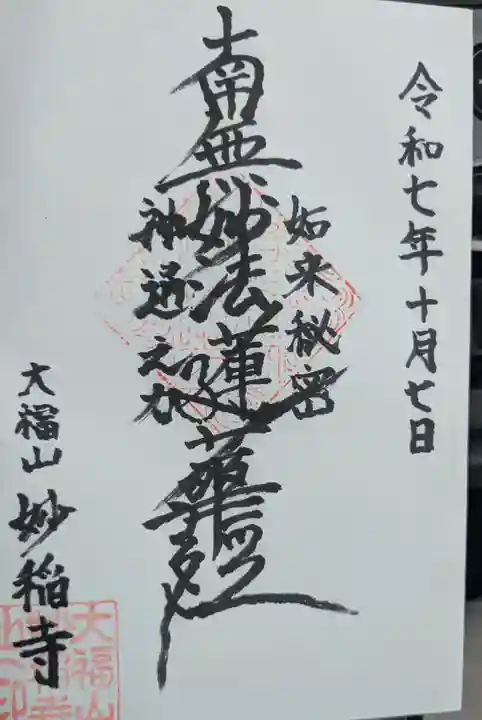 令和七年十月七日
如来秘密
南無妙法蓮華経
神通之力
大福山 妙稲寺
大福山